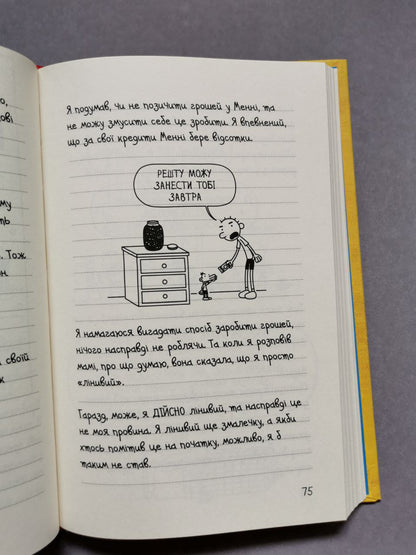 о,
ові
му
ть
. Тож
н.
своїй
к
Я подумав, чи не позичити грошей у Менні, та
не можу змусити себе це зробити. Я впевнений,
що за свої кредити Менні бере відсотки.
РЕШТУ МОЖУ
ЗАНЕСТИ ТОБІ
ЗАВТРА
Я намагаюся вигадати спосіб заробити грошей,
нічого насправді не роблячи. Та коли я розповів
мамі, про що думаю, вона сказала, що я просто
«лінивий».
Гаразд, може, я ДІЙСНО лінивий, та насправді це
не моя провина. Я лінивий ще змалечку, а якби
хтось помітив це на початку, можливо, я б
таким не став.
75